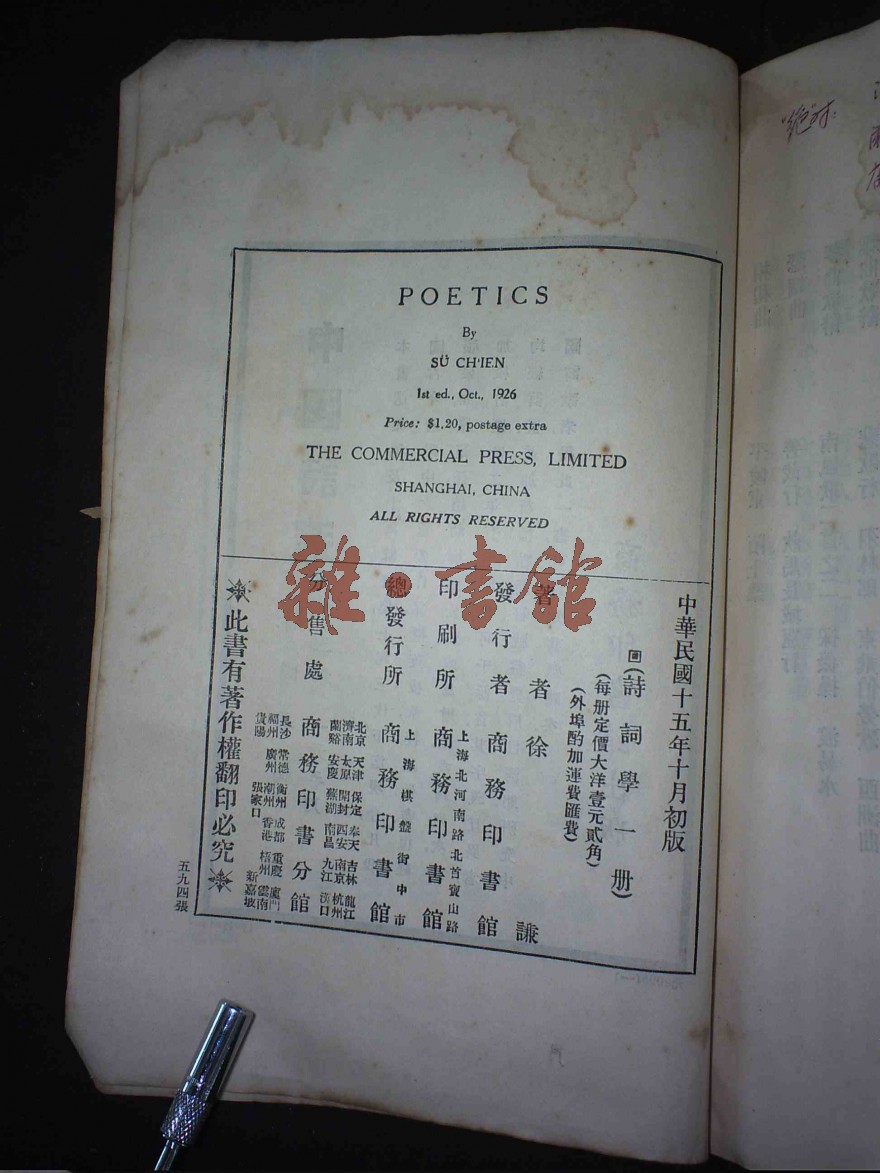 POETICS
By
SÜ CH'IEN
1st ed., Oct., 1926
Price: $1.20, postage extra
THE COMMERCIAL PRESS, LIMITED
SHANGHAI, CHINA
ALL RIGHTS RESERVED
雜·書館
中華民國十五年十月初版
(詩詞學一册)
(每册定價大洋壹元貳角)
(外埠酌加運費匯費)
著者 徐謙
發行者 商務印書館
上海北河南路北首寶山路
印刷所 商務印書館
上海棋盤街中市
總發行所 商務印書館
北京 天津 保定 奉天 吉林 龍江
濟南 太原 開封 西安 南京 杭州
蘭谿 安慶 蕪湖 南昌 九江 漢口
分售處 商務印書分館
長沙 常德 衡州 成都 重慶 廈門
福州 廣州 潮州 香港 梧州 雲南
貴陽 張家口 新嘉坡
此書有著作權翻印必究
五九四張